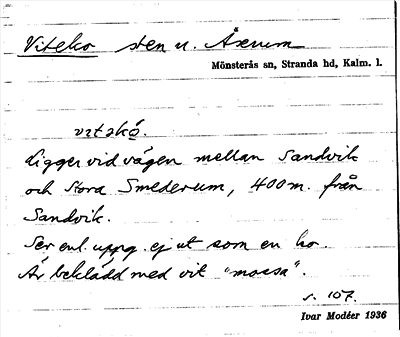 Viteko sten u. Åserum
Mönsterås sn, Stranda hd, Kalm. l.
vɩtəkó.
Ligger vid vägen mellan Sandvik
och Stora Smederum, 400 m. från
Sandvik.
Ser enl. uppg. ej ut som en ko.
Är beklädd med vit "mossa".
s. 107.
Ivar Modéer 1936